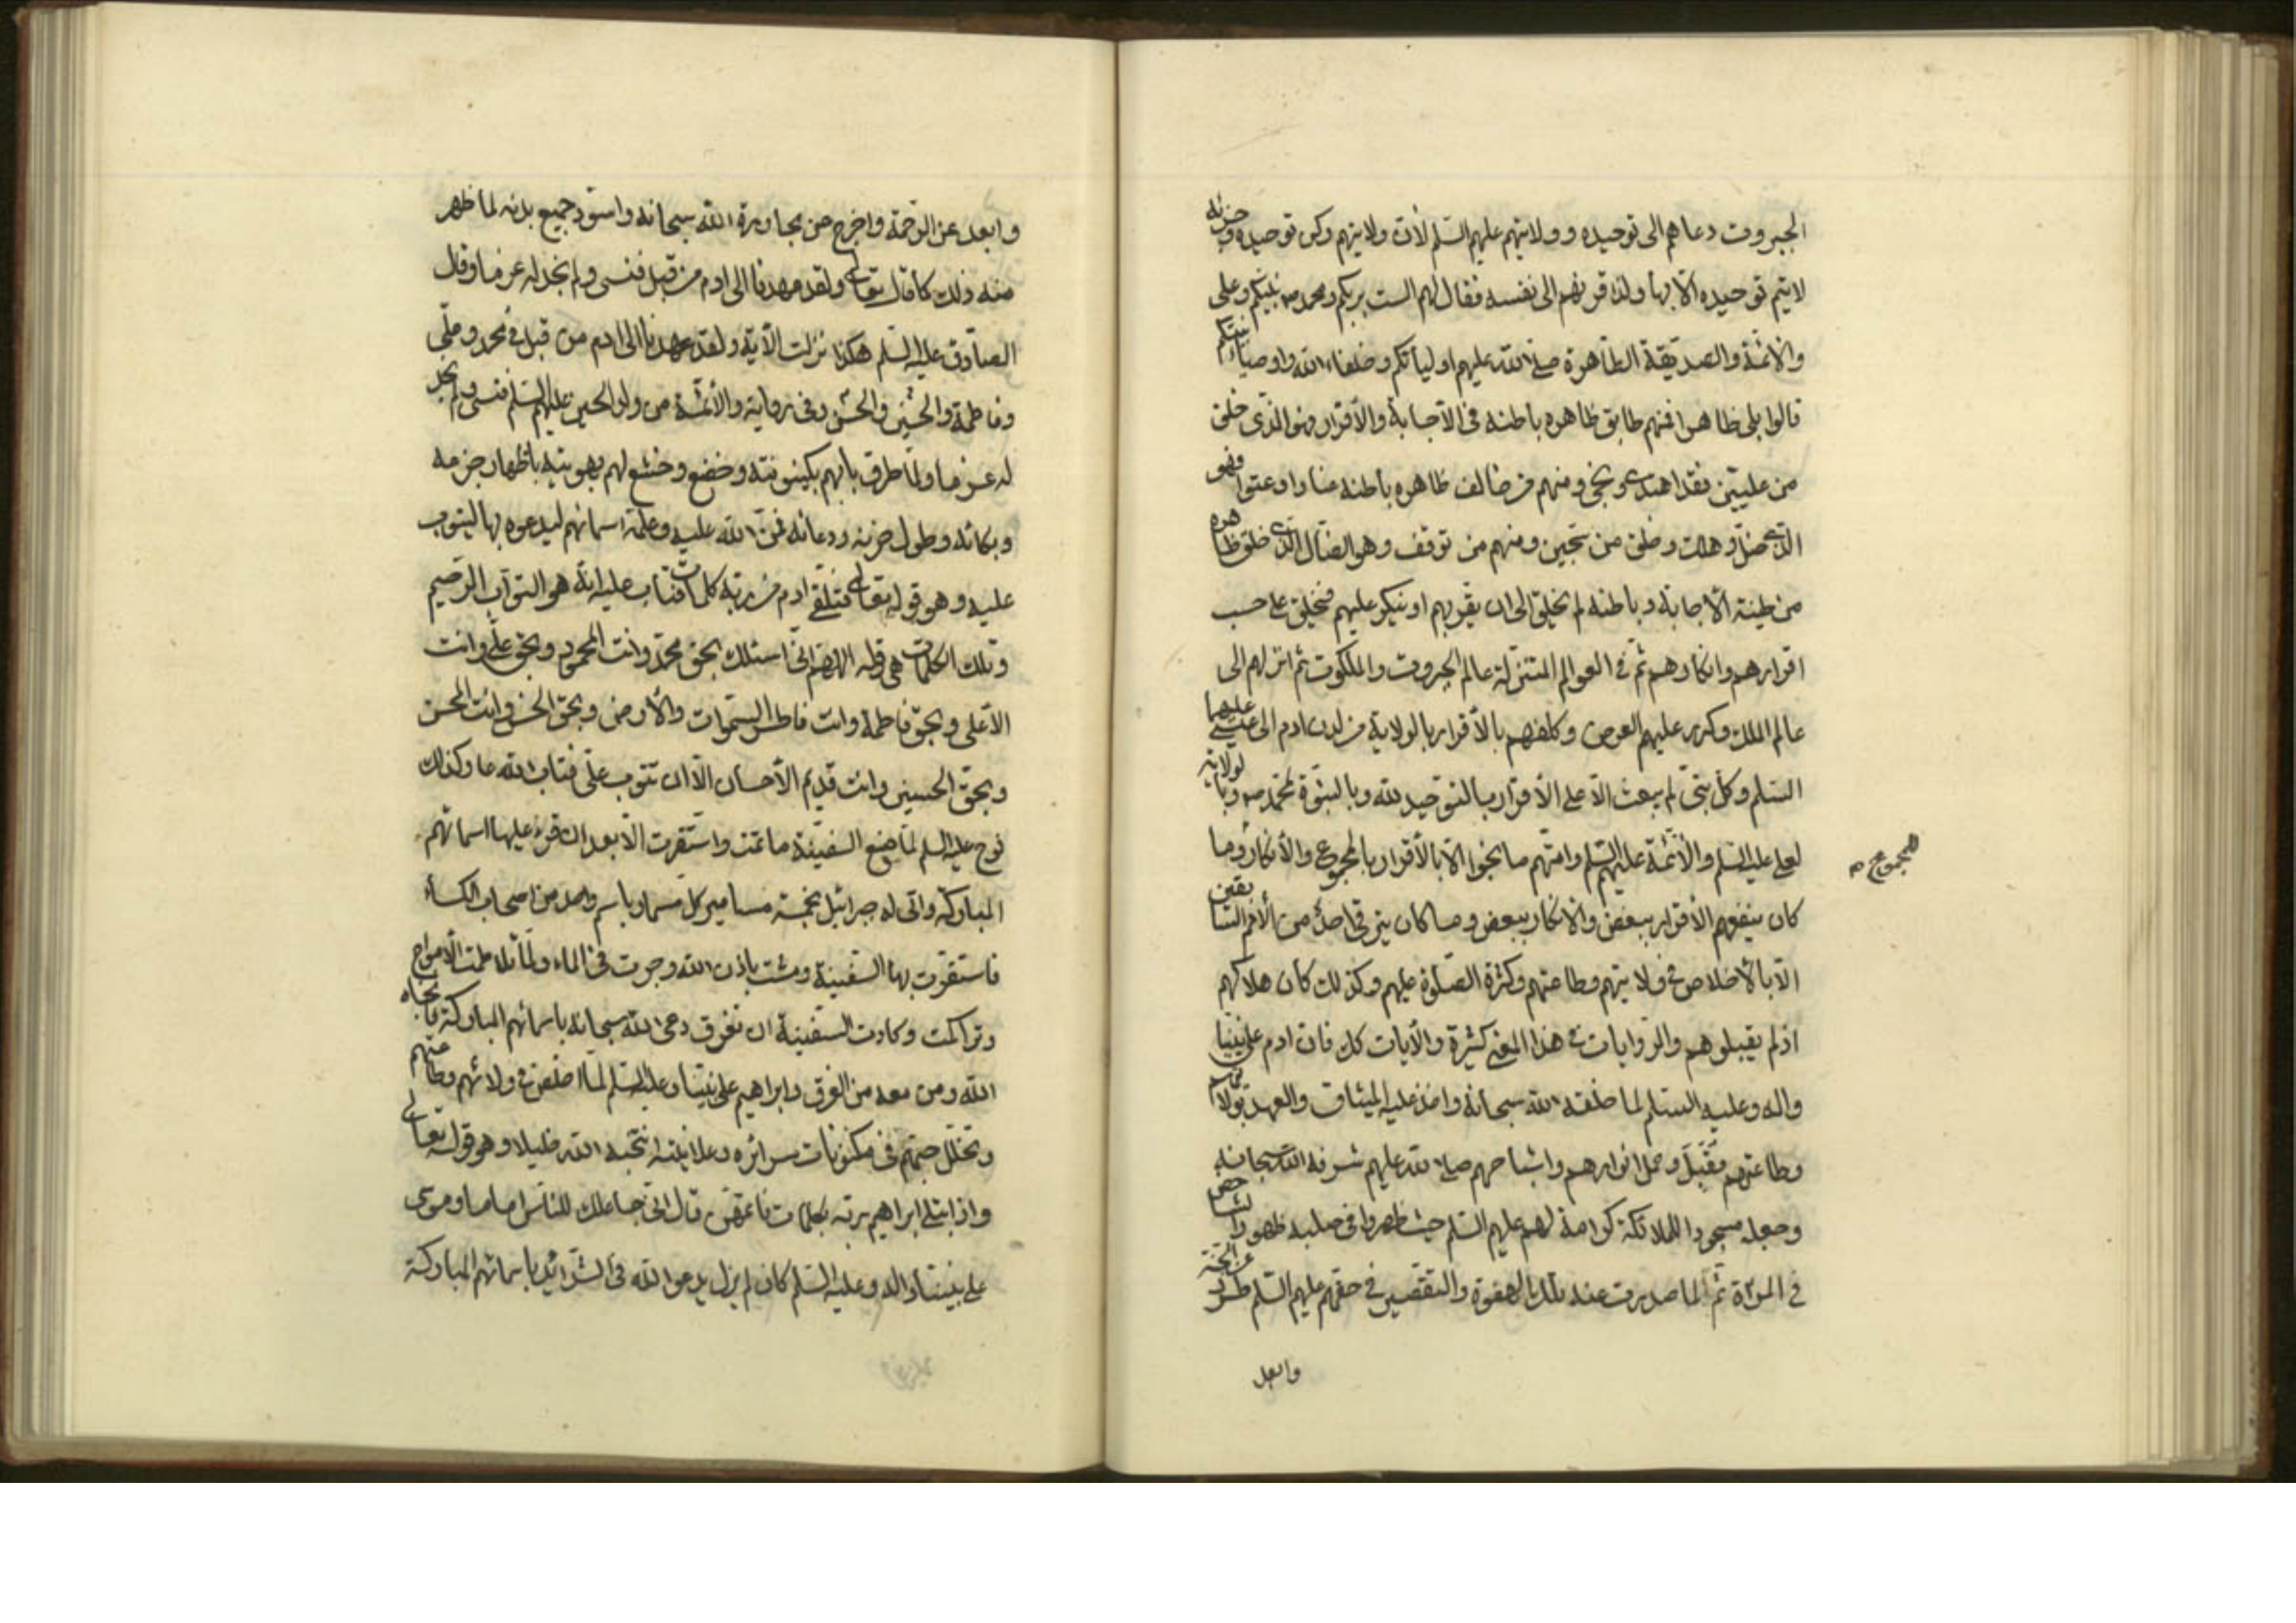 الجبروت دعاهم الى توحيده وولايتهم عليهم السّلم لأن ولايتهم ركن توحيده وجزئه
لايتم توحيده الّا بها ولذا قرنهم الى نفسه فقال لهم الست بربكم ومحمد ص نبيّكم وعلى
والائمّة والصديقة الطّاهرة صلى الله عليهم اوليائكم وخلفاء الله واوصياء نبيّكم
قالوا بلى ظاهرا فمنهم طابق ظاهره باطنه فى الأجابة والأقرار وهو الذى خلق
من عليّين فقد اهتدى ونجى ومنهم من خالف ظاهره باطنه عنادا وعتوا فهو
الّذى ضلّ وهلك وخلق من سجّين ومنهم من توقف وهو الضال الّذى خلق ظاهره
من طينة الأجابة وباطنه لم يخلق الى ان يقرّ بهم او ينكر عليهم فيخلق على حسب
اقرارهم وانكارهم ثم فى العوالم المتنزلة عالم الجبروت والملكوت ثم انزلهم الى
عالم الملك وكرر عليهم العرض وكلفهم بالأقرار بالولاية من لدن ادم الى عيسى عليهما
السّلم وكلّ نبىّ لم يبعث الّا على الأقرار بالتوحيد لله وبالنبوّة لمحمد ص وبالولاية
لعلى عليه السّلم والأئمّة عليهم السّلم وامتهم ما نجوا الّا بالأقرار بالمجموع والأنكار وما
للمجموع ص
كان ينفعهم الأقرار ببعض والانكار ببعض وما كان يترقى احد من الأمم السّابقين
الّا بالأخلاص فى ولايتهم وطاعتهم وكثرة الصّلوة عليهم وكذلك كان هلاكهم
اذ لم يقبلوهم والرّوايات فى هذا المعنى كثيرة والأيات كك فان ادم على نبينا
واله وعليه السّلم لما خلقه الله سبحانه واخذ عليه الميثاق والعهد بولايتهم
وطاعتهم فقبل وحمل انوارهم واشباحهم صلى الله عليهم شرفه الله سبحانه
وجعله مسجودا للملائكة كرامة لهم عليهم السّلم حيث ظهروا فى صلبه ظهور الشاخص
فى المرآة ثم لما صدرت عنه تلك الهفوة والتقصير فى حقهم عليهم السّلم طرد عن الجنّة
وابعد
وابعد عن الرّحمة واخرج من مجاورة الله سبحانه واسود جميع بدنه لما ظهر
منه ذلك كما قال تعالى ولقد عهدنا الى ادم من قبل فنسى ولم نجد له عزما وقال
الصّادق عليه السّلم هكذا نزلت الأية ولقد عهدنا الى ادم من قبل فى محمد وعلّى
وفاطمة والحسن والحسين وفى رواية والأئمّة من ولد الحسين عليهم السّلم فنسى ولم نجد
له عزما ولمّا طرق بابهم بكينونته وخضع وخشع لهم بهويته باظهار جزعه
وبكائه وطول حزنه ودعائه فمنّ الله عليه وعلّمه اسمائهم ليدعوه بها ليتوب
عليه وهو قوله تعالى فتلقى ادم من ربّه كلمات فتاب عليه انّه هو التوّاب الرّحيم
وتلك الكلمات هى قوله الهم انى اسئلك بحق محمّد وانت المحمود وبحق علّى وانت
الأعلى وبحق فاطمة وانت فاطر السّموات والأرض وبحق الحسن وانت المحسن
وبحق الحسين وانت قديم الأحسان الّا ان تتوب علّى فتاب الله عا وكذلك
نوح عليه السلم لمّا صنع السّفينة ما تمت واستقرت الّا بعد ان قرء عليها اسمائهم
المباركة واتى له جبرائيل بخمسة مسامير كل مسمار باسم واحد من اصحاب الكساء
فاستقرت بها السّفينة ومشت باذن الله وجرت فى الماء ولمّا تلاطمت الأمواج
وتراكمت وكادت السّفينة ان تغرق دعى الله سبحانه باسمائهم المباركة فانجاه
الله ومن معه من الغرق وابراهيم على نبيّنا وعليه السّلم لمّا اخلص فى ولائهم وطاعتهم
وتخلّل حبّهم فى مكنونات سرائره وعلانيته انتجبه الله خليلا وهو قوله تعالى
واذ ابتلى ابراهيم ربّه بكلمات فاتمّهن قال انّى جاعلك للنّاس اماما وموسى
على نبيّنا واله وعليه السّلم كان لم يزل يدعو الله فى الشّدائد باسمائهم المباركة